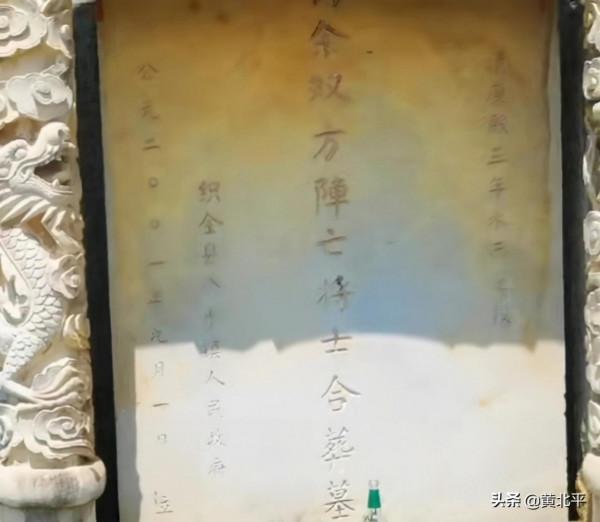 康熙三年水西
余双方陣亡将士合葬墓
织金县八步镇人民政府
公元二〇〇一年九月一日 立
头条 @黄北平